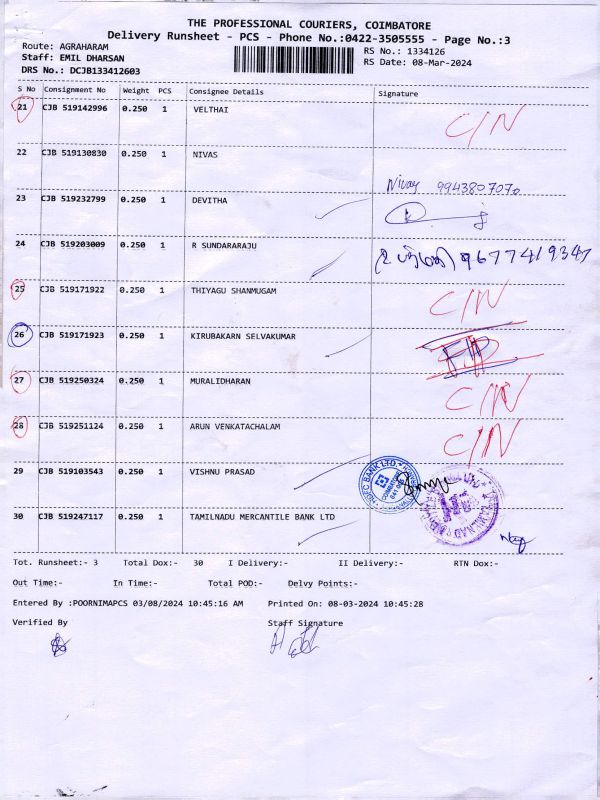 THE PROFESSIONAL COURIERS, COIMBATORE
Delivery Runsheet - PCS - Phone No.:0422-3505555 - Page No.:3
Route: AGRAHARAM RS No.: 1334126
Staff: EMIL DHARSAN RS Date: 08-Mar-2024
DRS No.: DCJB133412603
S No Consignment No Weight PCS Consignee Details Signature
21 CJB 519142996 0.250 1 VELTHAI C/N
22 CJB 519130830 0.250 1 NIVAS Nivas 9943807070
23 CJB 519232799 0.250 1 DEVITHA
24 CJB 519203009 0.250 1 R SUNDARARAJU 9677419347
25 CJB 519171922 0.250 1 THIYAGU SHANMUGAM C/N
26 CJB 519171923 0.250 1 KIRUBAKARN SELVAKUMAR
27 CJB 519250324 0.250 1 MURALIDHARAN C/N
28 CJB 519251124 0.250 1 ARUN VENKATACHALAM C/N
29 CJB 519103543 0.250 1 VISHNU PRASAD
30 CJB 519247117 0.250 1 TAMILNADU MERCANTILE BANK LTD
Tot. Runsheet:- 3 Total Dox:- 30 I Delivery:- II Delivery:- RTN Dox:-
Out Time:- In Time:- Total POD:- Delvy Points:-
Entered By :POORNIMAPCS 03/08/2024 10:45:16 AM Printed On: 08-03-2024 10:45:28
Verified By Staff Signature